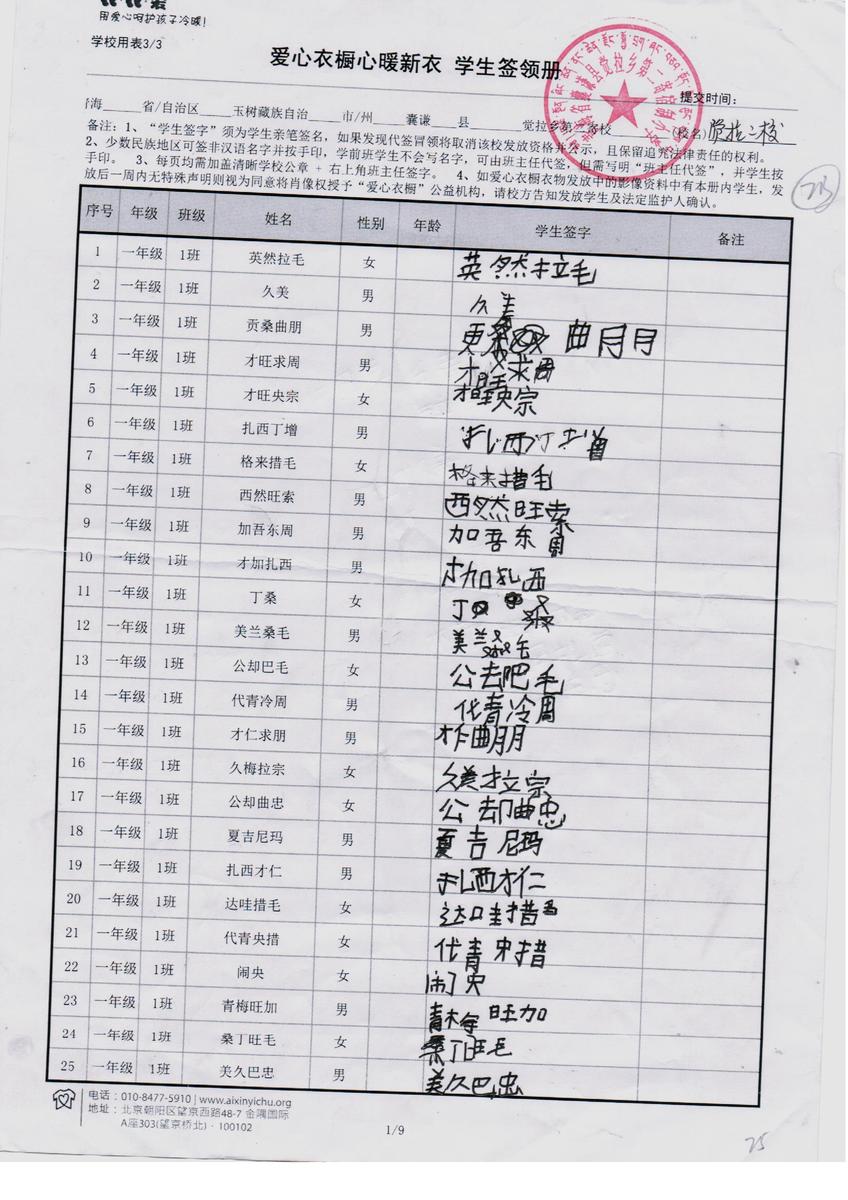 用爱心呵护孩子冷暖!
学校用表3/3
爱心衣橱心暖新衣 学生签领册
提交时间:
海______省/自治区______玉树藏族自治______市/州______囊谦______县______觉拉乡第二寄校______(校名) 觉拉二校
备注:1、“学生签字”须为学生亲笔签名,如果发现代签冒领将取消该校发放资格并公示,且保留追究法律责任的权利。
2、少数民族地区可签非汉语名字并按手印,学前班学生不会写名字,可由班主任代签,但需写明“班主任代签”,并学生按
手印。 3、每页均需加盖清晰学校公章 + 右上角班主任签字。 4、如爱心衣橱衣物发放中的影像资料中有本册内学生,发
放后一周内无特殊声明则视为同意将肖像权授予“爱心衣橱”公益机构,请校方告知发放学生及法定监护人确认。
25
序号 年级 班级 姓名 性别 年龄 学生签字 备注
1 一年级 1班 英然拉毛 女 英然拉毛
2 一年级 1班 久美 男 久美
3 一年级 1班 贡桑曲朋 男 曲朋
4 一年级 1班 才旺求周 男 才旺求周
5 一年级 1班 才旺央宗 女 才旺央宗
6 一年级 1班 扎西丁增 男 扎西丁增
7 一年级 1班 格来措毛 女 格来措毛
8 一年级 1班 西然旺索 男 西然旺索
9 一年级 1班 加吾东周 男 加吾东周
10 一年级 1班 才加扎西 男 才加扎西
11 一年级 1班 丁桑 女 丁桑
12 一年级 1班 美兰桑毛 男 美兰桑毛
13 一年级 1班 公却巴毛 女 公去吧毛
14 一年级 1班 代青冷周 男 代青冷周
15 一年级 1班 才仁求朋 男 曲朋
16 一年级 1班 久梅拉宗 女 久美拉宗
17 一年级 1班 公却曲忠 女 公却曲忠
18 一年级 1班 夏吉尼玛 男 夏吉尼玛
19 一年级 1班 扎西才仁 男 扎西才仁
20 一年级 1班 达哇措毛 女 达哇措毛
21 一年级 1班 代青央措 女 代青央措
22 一年级 1班 闹央 女 闹央
23 一年级 1班 青梅旺加 男 青梅旺加
24 一年级 1班 桑丁旺毛 女 桑丁旺毛
25 一年级 1班 美久巴忠 男 美久巴忠
电话:010-8477-5910 | www.aixinyichu.org
地址:北京朝阳区望京西路48-7 金隅国际
A座303(望京桥北)· 100102
1/9
25